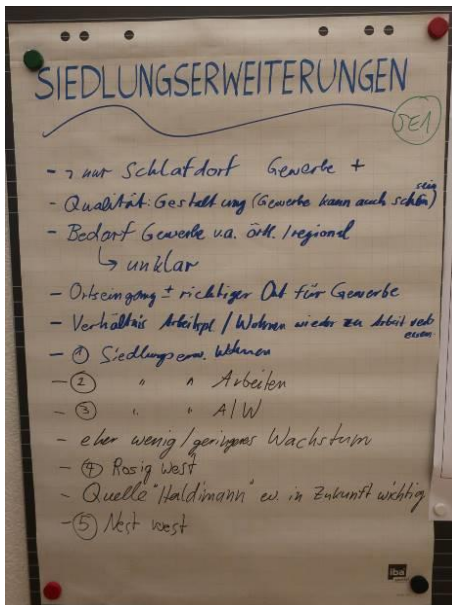 SIEDLUNGSERWEITERUNGEN
SE1
- nur Schlafdorf Gewerbe +
- Qualität: Gestaltung (Gewerbe kann auch schön sein)
- Bedarf Gewerbe v.a. örtl. / regional
↳ unklar
- Ortseingang ± richtiger Ort für Gewerbe
- Verhältnis Arbeitspl / Wohnen wieder zu Arbeit
- ① Siedlungserw. Wohnen
- ② " " Arbeiten
- ③ " " A/W
- eher wenig / geringeres Wachstum
- ④ Rosig West
- Quelle "Haldimann" ev. in Zukunft wichtig
- ⑤ Nest west
iba